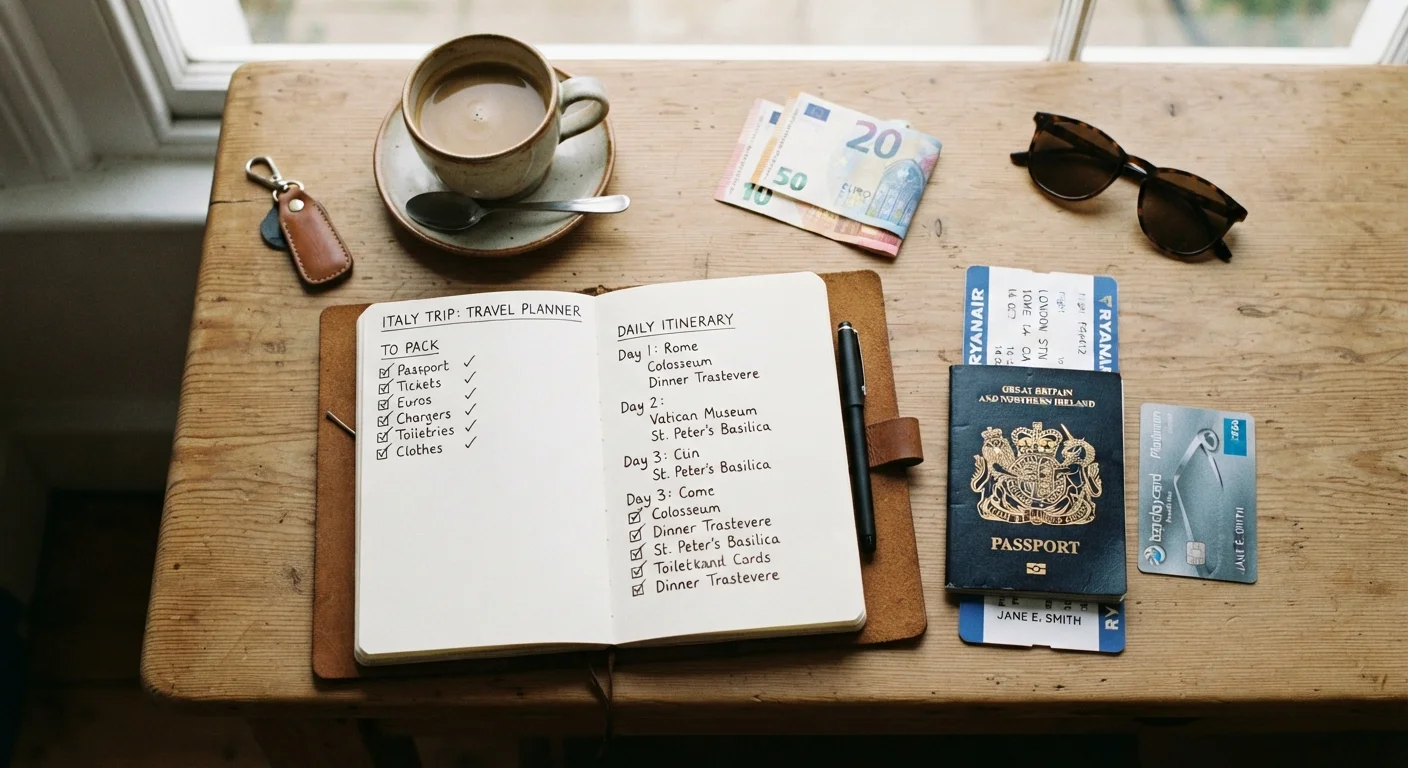 ITALY TRIP: TRAVEL PLANNER
TO PACK
Passport
Tickets
Euros
Chargers
Toiletries
Clothes
DAILY ITINERARY
Day 1: Rome
Colosseum
Dinner Trastevere
Day 2:
Vatican Museum
St. Peter's Basilica
Day 3: Cün
St. Peter's Basilica
Day 3: Come
Colosseum
Dinner Trastevere
St. Peter's Basilica
Toiletkand Cards
Dinner Trastevere
20
50
10
RYANAIR
LONDON STN
RYANAIR
GREAT BRITAIN
AND NORTHERN IRELAND
PASSPORT
JANE E, SMITH
RY